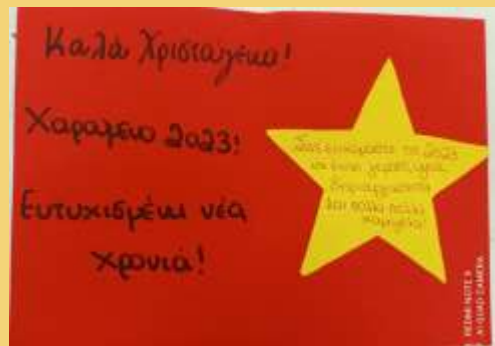 Καλά Χριστούγεννα!
Χαρούμενο 2023!
Ευτυχισμένη νέα
χρονιά!
Σας ευχόμαστε το 2023
να είναι γεμάτο υγεία
και πολλά πολλά
χαμόγελα!
REDMI NOTE 9
AI QUAD CAMERA